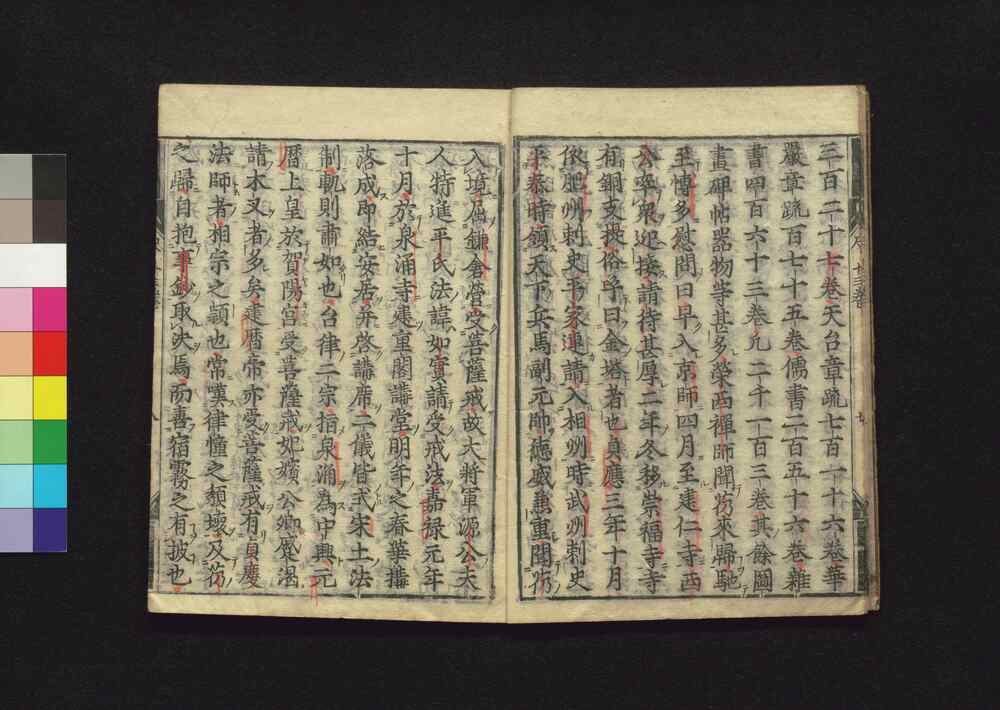 三百二十七卷天台章疏七百一十六卷華
嚴章疏百七十五卷儒書二百五十六卷雜
書四百六十三卷凡二千一百三卷其餘圖
書碑帖器物等甚多榮西禪師聞芿來歸馳
至博多慰問曰早入京師四月至建仁寺西
公率衆迎接請待甚厚二年冬移崇福寺寺
有銅支提俗呼曰金塔者也貞應三年十月
依肥州刺史平家連請入相州時武州刺史
平泰時領天下兵馬副元帥德威惠重聞芿
入境屈鎌倉營受菩薩戒故大將軍源公夫
人特進平氏法諱如實請受戒法嘉祿元年
十月於泉涌寺建重閣講堂明年之春華搆
落成即結安居并啓講席二儀皆式宋土法
制軌則肅如也台律二宗指泉涌為中興元
曆上皇於賀陽宮受菩薩戒妃嬪公卿感渴
請木叉者多矣建曆帝亦受菩薩戒有貞慶
法師者相宗之顓也常嘆律幢之頽壞及芿
之歸自抱事鈔取決焉而喜宿霧之有披也